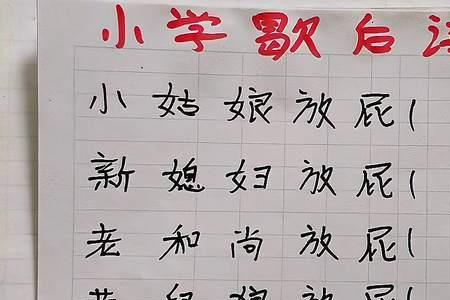 小学歇后语
小姑娘放屁(
新媳妇放屁(
老和尚放屁(